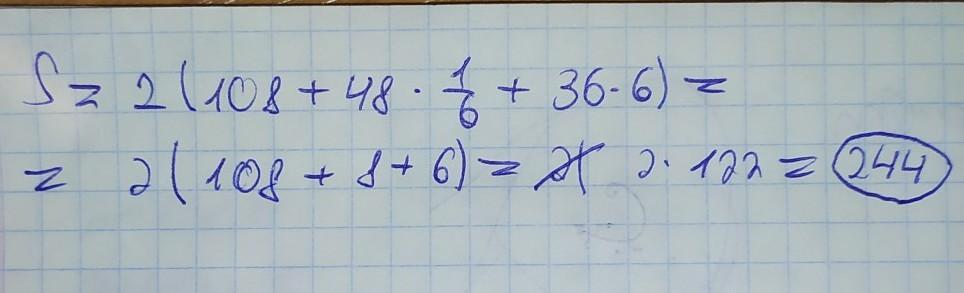 S = 2 (108 + 48 · 1/6 + 36 · 6) =
= 2 ( 108 + 8 + 6) = 2( 2 · 122 = 244